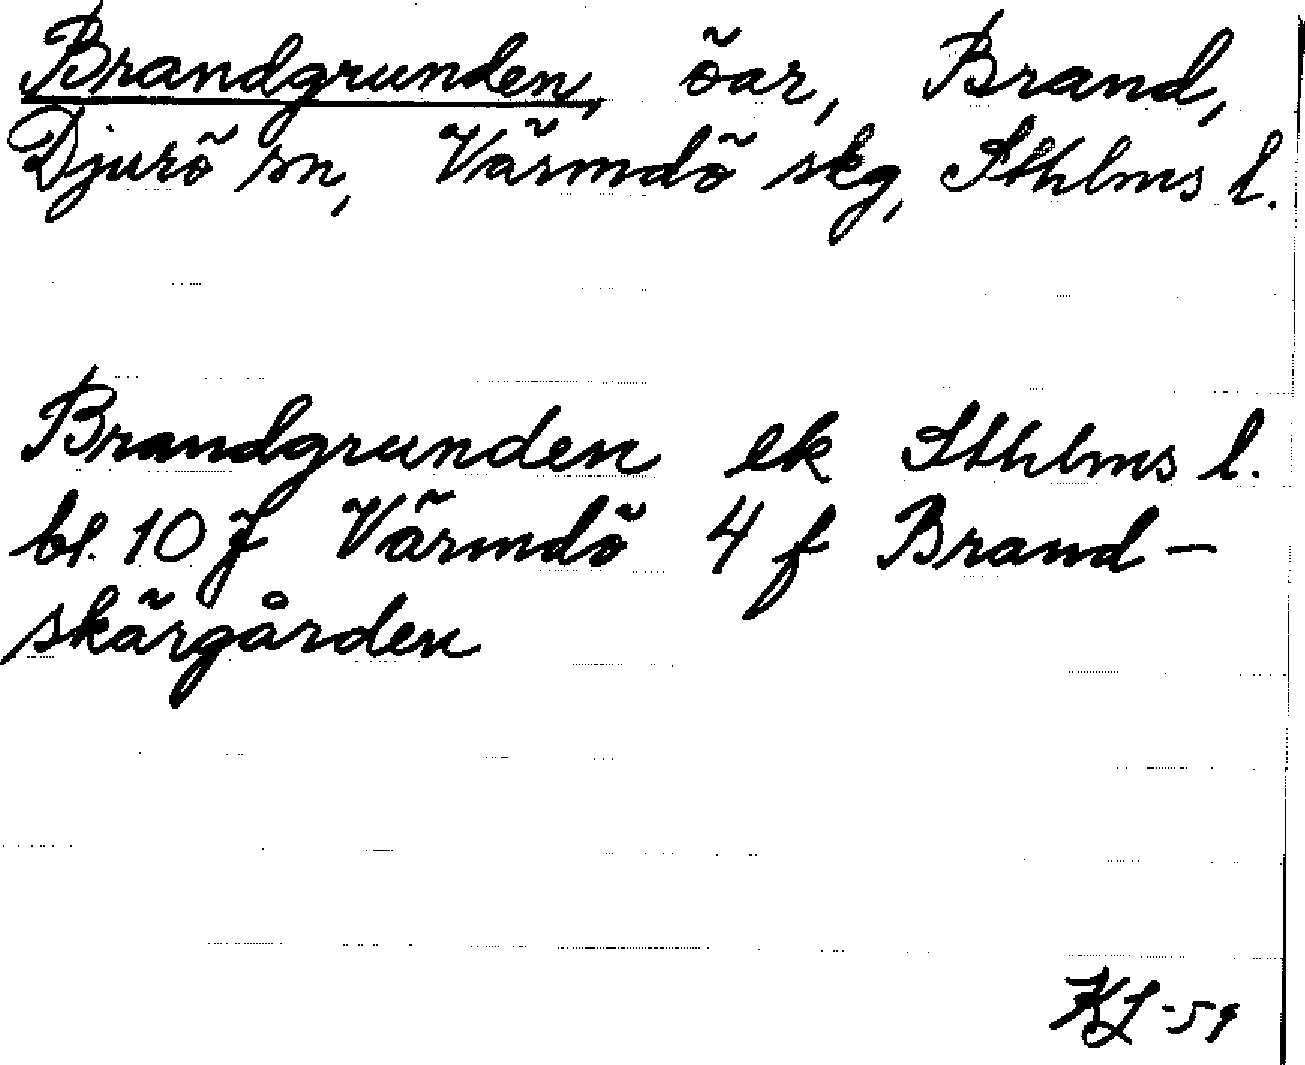 Brandgrunden, öar, Brand,
Djurö sn, Värmdö skg, Sthlms l.
Brandgrunden ek Sthlms l.
bl. 10 J Värmdö 4 f Brand-
skärgården
KL -59